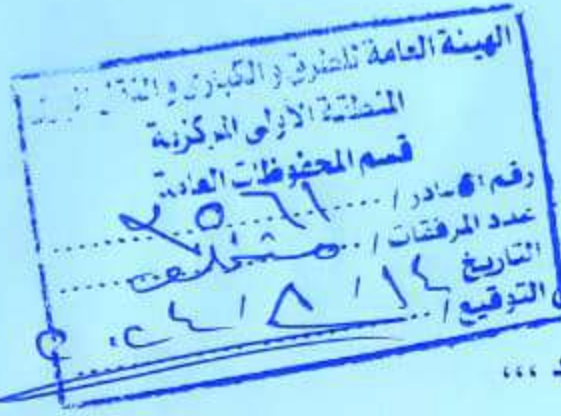 الهيئة العامة للطرق والكبارى والنقل
المنطقة الاولى المركزية
قسم المحفوظات العامة
رقم الصادر / ٢٥٦١
عدد المرفقات /
التاريخ ١٤ / ٨ / ٢٤
التوقيع /
،،،